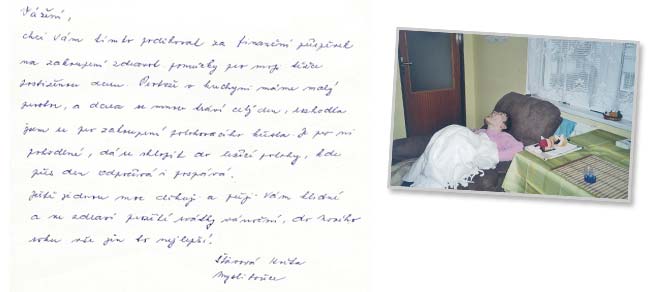 Vážení,
chci Vám tímto poděkovat za finanční příspěvek
na zakoupení zdravot. pomůcky pro moji těžce
postiženou dceru. Protože v kuchyni máme malý
prostor, a dcera se musí trávit celý den, rozhodla
jsem se pro zakoupení polohovacího křesla. Je pro ni
pohodlné, dá se sklopit do ležící polohy, kde
přes den odpočívá i pospává.
Ještě jednou moc děkuji a přeji Vám klidné
a ve zdraví prožité svátky vánoční, do nového
roku vše jen to nejlepší.
Šťávová